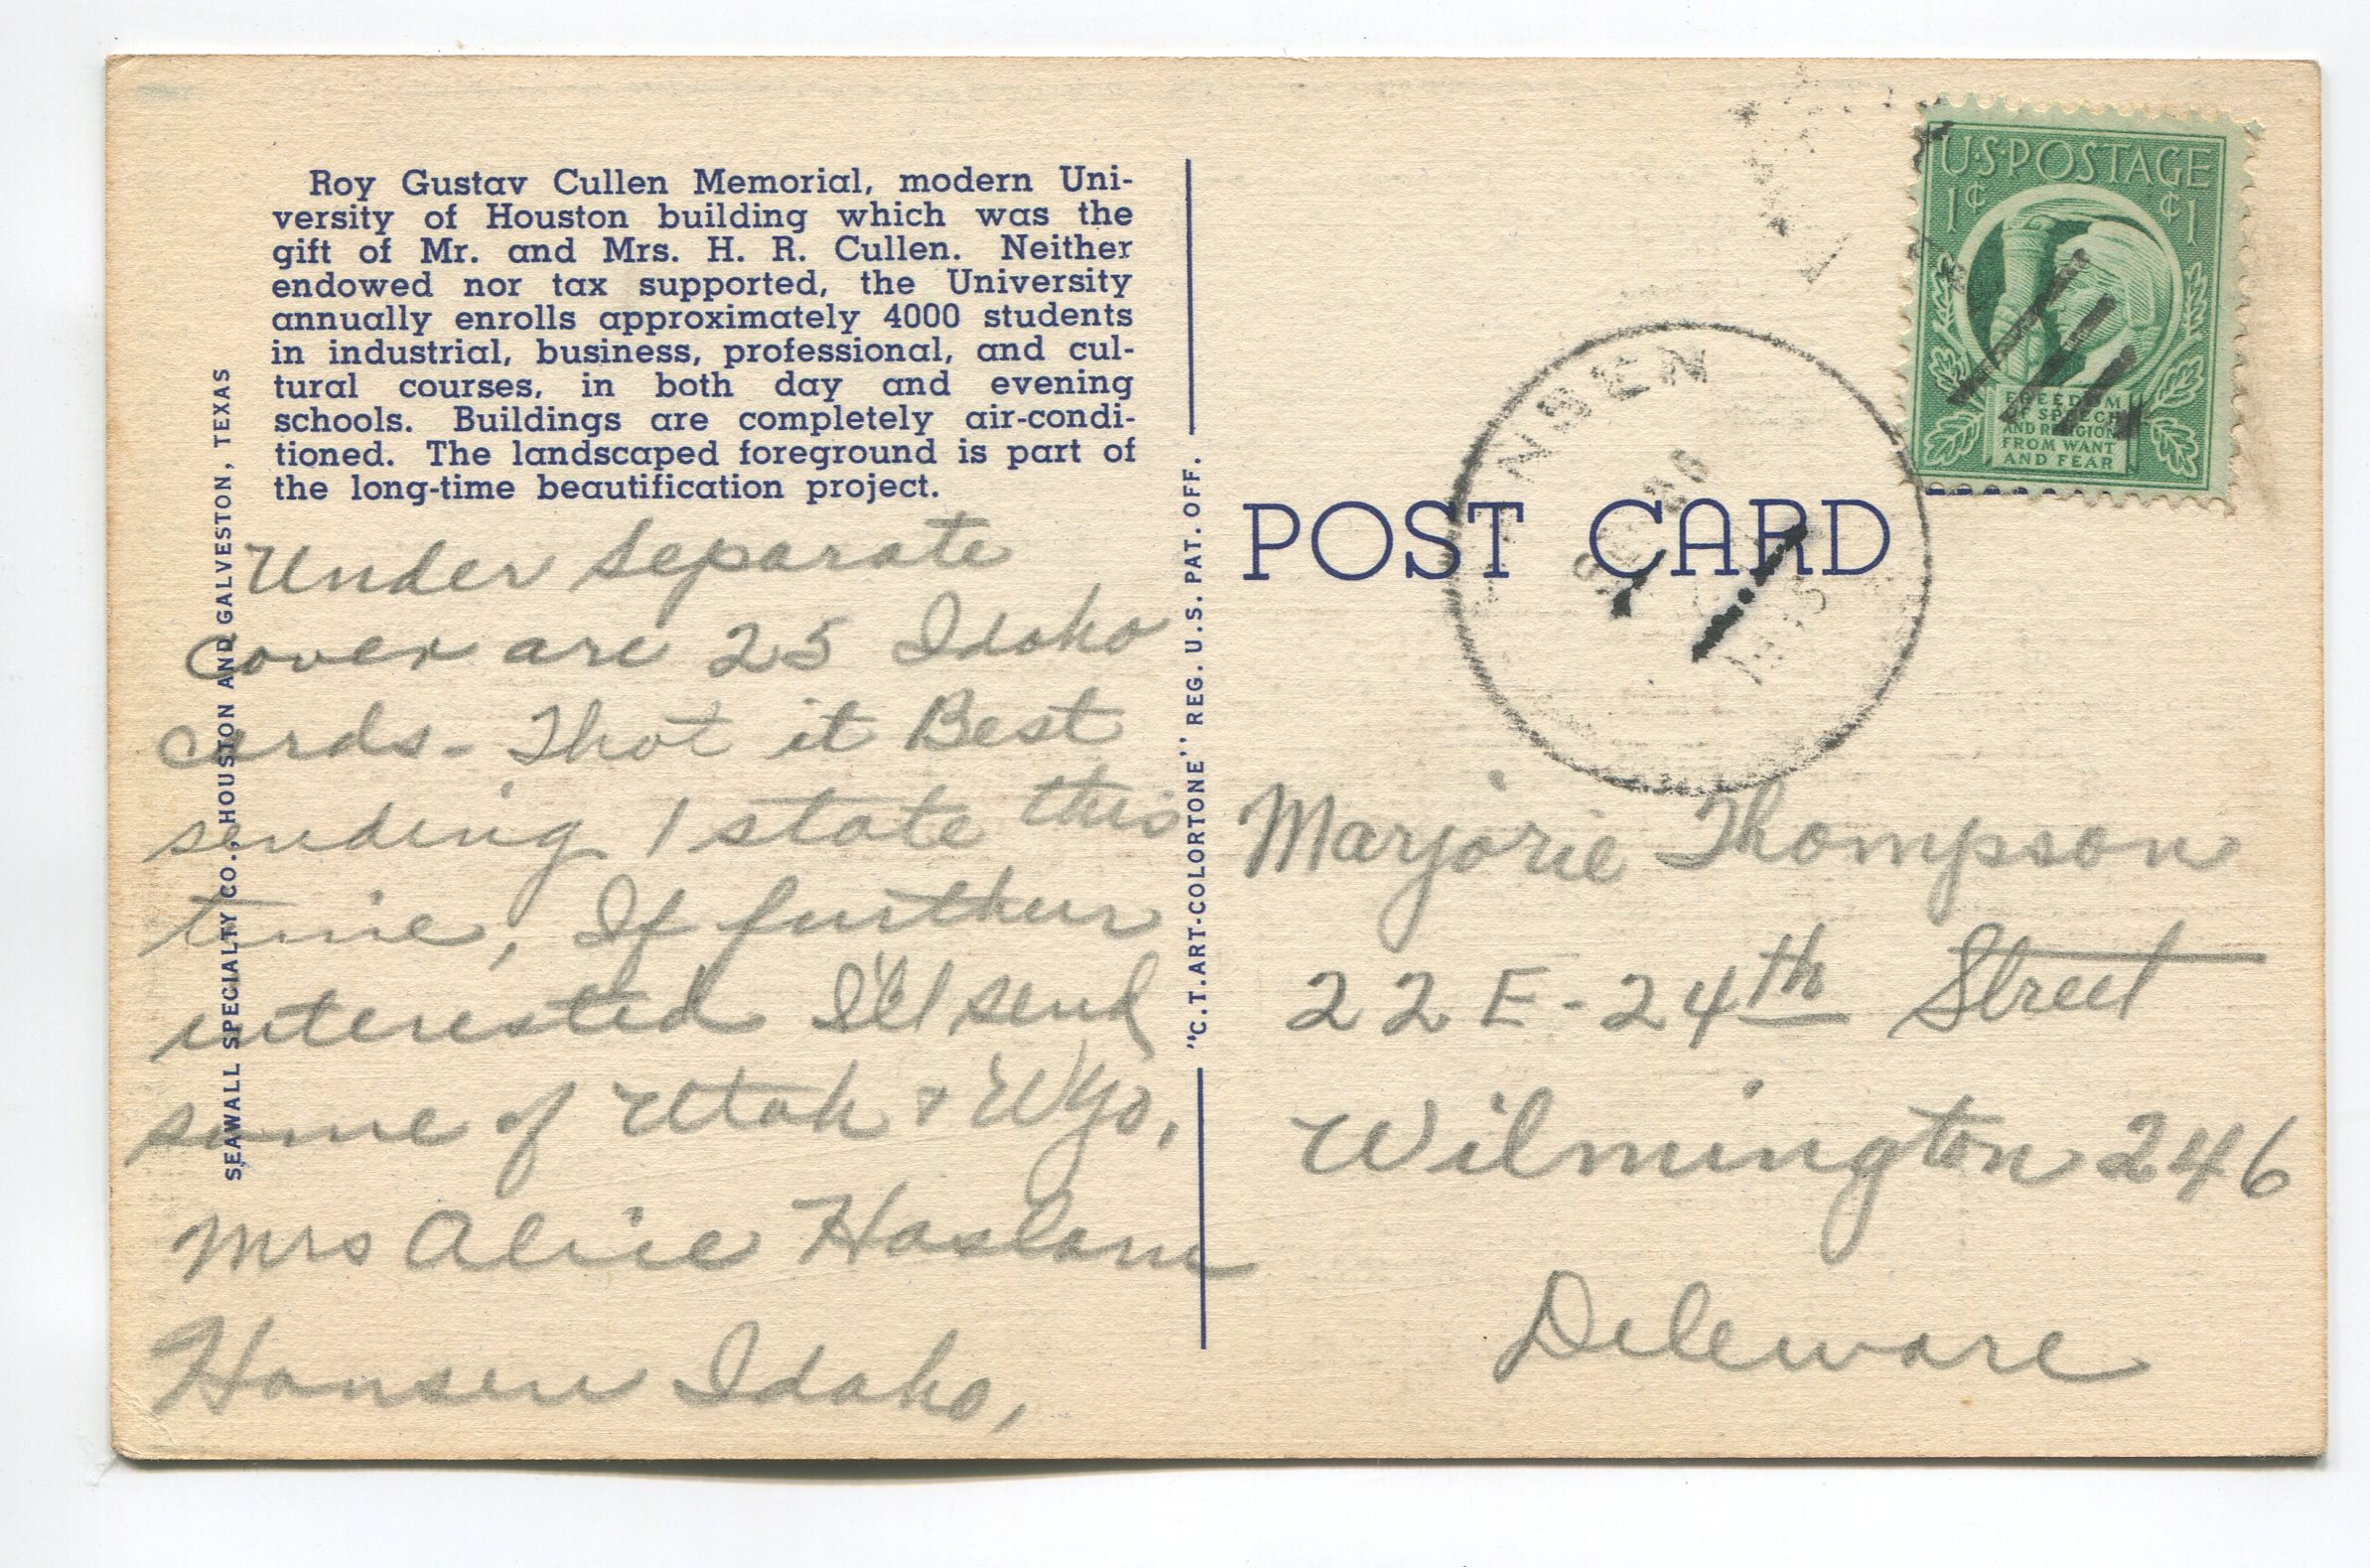 Roy Gustav Cullen Memorial, modern Uni-
versity of Houston building which was the
gift of Mr. and Mrs. H. R. Cullen. Neither
endowed nor tax supported, the University
annually enrolls approximately 4000 students
in industrial, business, professional, and cul-
tural courses, in both day and evening
schools. Buildings are completely air-condi-
tioned. The landscaped foreground is part of
the long-time beautification project.
SEAWALL SPECIALTY CO., HOUSTON AND GALVESTON, TEXAS
Under separate
cover are 25 Idaho
cards - Thot it Best
sending 1 state this
time, If further
interested I'll send
some of Utah + Wyo,
Mrs Alice Haslam
Hansen Idaho,
"C.T. ART-COLORTONE" REG. U.S. PAT. OFF.
POST CARD
U·S·POSTAGE
1¢ ¢1
FREEDOM
OF SPEECH
AND RELIGION
FROM WANT
AND FEAR
Marjorie Thompson
22 E - 24th Street
Wilmington 246
Deleware